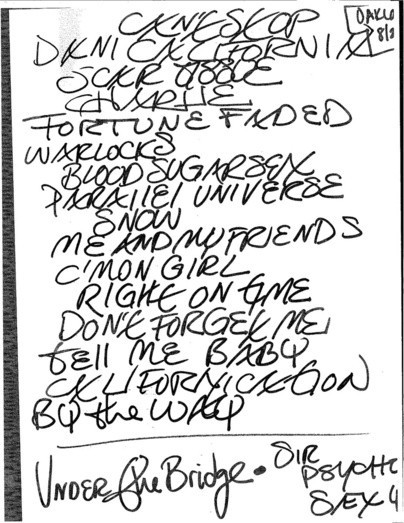 OAKLD
CAN'T STOP
DANI CALIFORNIA
SCAR TISSUE
CHARLIE
FORTUNE FADED
WARLOCKS
BLOOD SUGAR SEX
PARALLEl UNIVERSE
SNOW
ME AND MY FRIENDS
C'MON GIRL
RIGHT ON TIME
DON'T FORGET ME
tEll ME BABY
CALIFORNICATION
BY the WAY
UNDER the BRidge • SIR
PSYCHO
SEXY